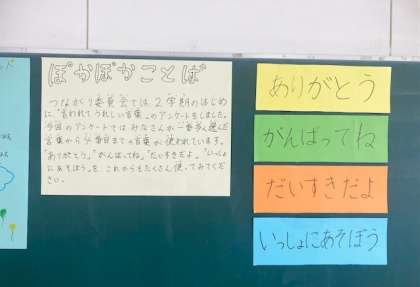 ぽかぽかことば
つながり委員会では2学期のはじめ
に、"言われてうれしい言葉"のアンケートをしました。
今回のアンケートではみなさんが一番多く選んだ
言葉から4番目までの言葉が使われています。
"ありがとう"、"がんばってね"、"だいすきだよ"、"いっしょ
にあそぼう"を、これからもたくさん使ってみてくだ
さい。
ありがとう
がんばってね
だいすきだよ
いっしょにあそぼう